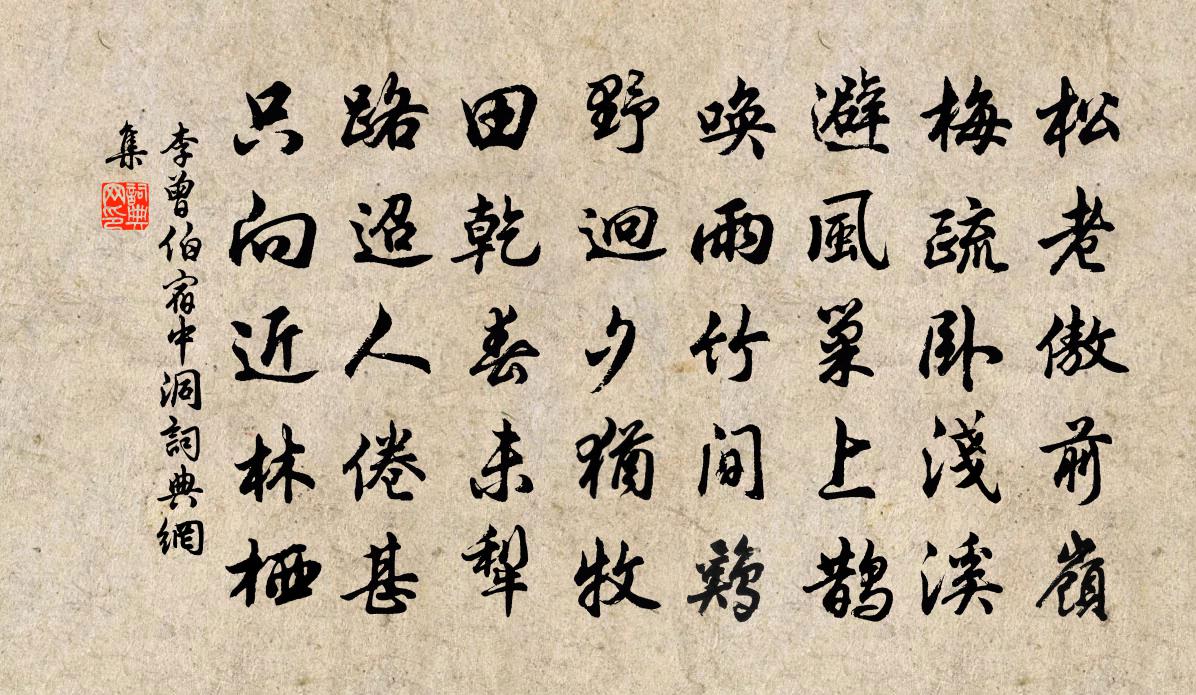 松老傲前嶺
梅疏卧淺溪
避風巢上鵲
喚雨竹間鷄
野迥夕猶牧
田乾春未犁
路迢人倦甚
只向近林栖
李曾伯宿中洞詞典網
集
詞典
网印